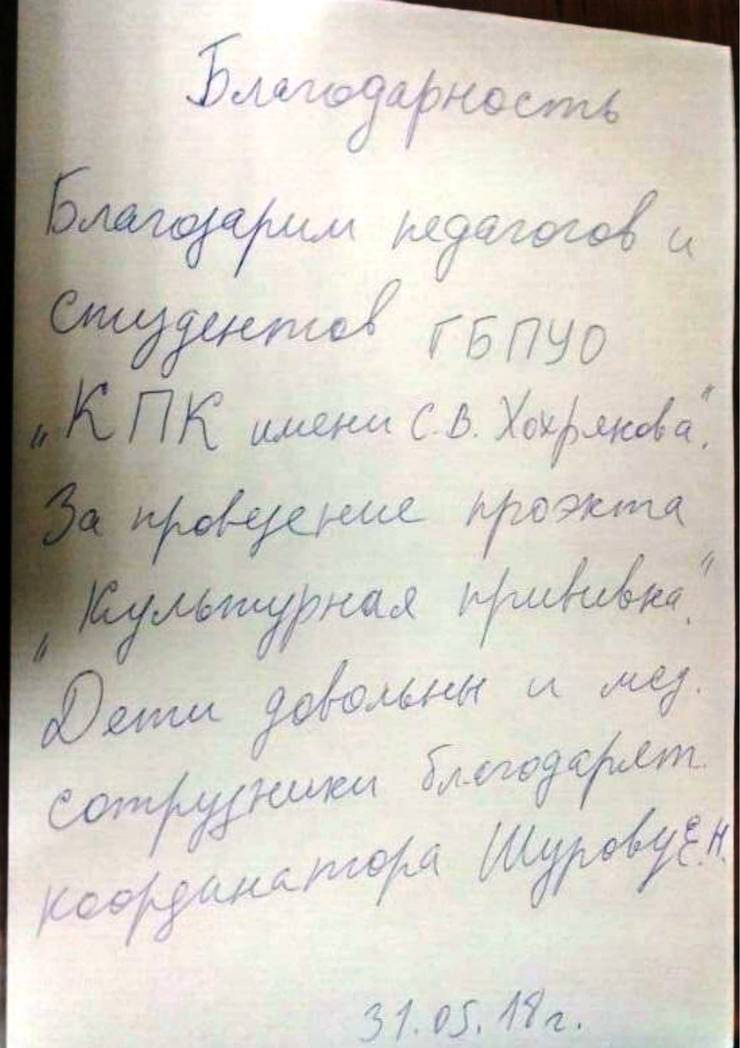 Благодарность
Благодарим педагогов и
студентов ГБПУО
„КПК имени С.В. Хохрякова".
За проведение проэкта
„Культурная прививка".
Дети довольны и мед.
сотрудники благодарят.
координатора Шурову Е.Н.
31.05.18г.